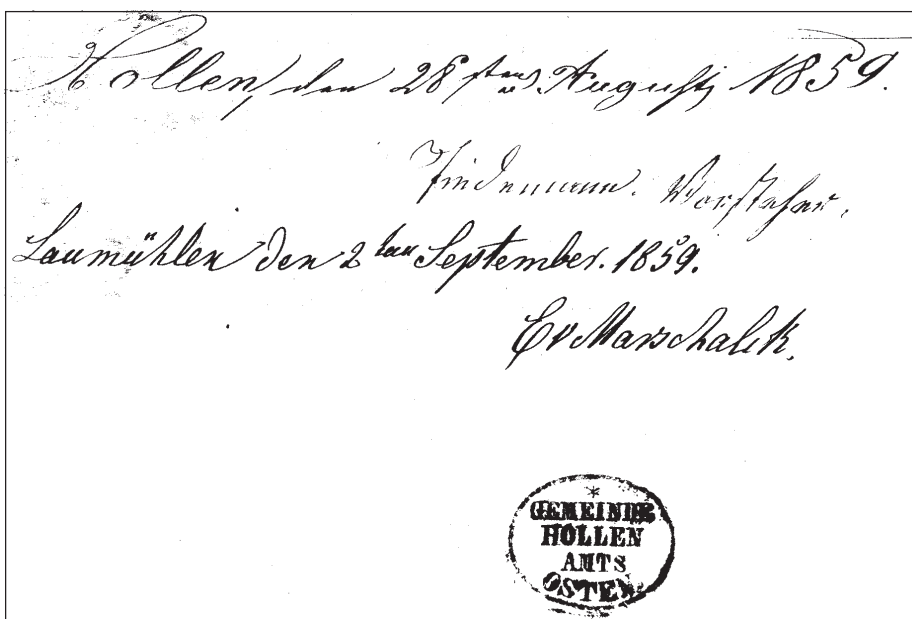 Hollen, den 28sten August 1859.
Tiedemann. Vorsteher.
Laumühlen den 2ten September. 1859.
E v Marschalck.
*
GEMEINDE
HOLLEN
AMTS
OSTEN